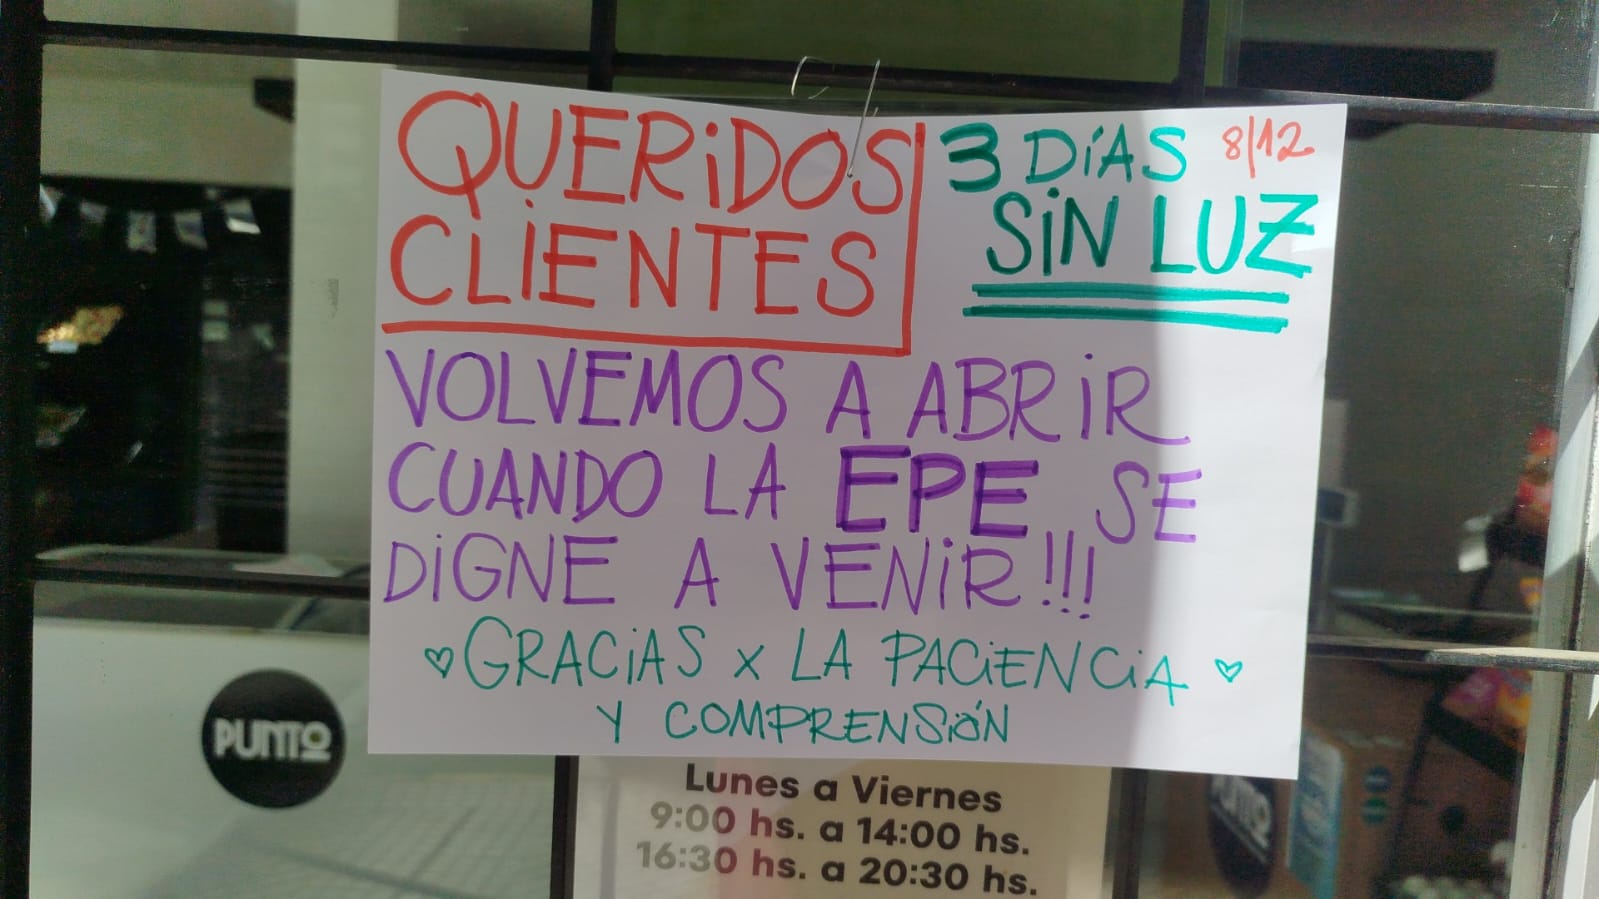 QUERIDOS
CLIENTES
3 DÍAS 8/12
SIN LUZ
VOLVEMOS A ABRIR
CUANDO LA EPE SE
DIGNE A VENIR!!!
♡ GRACIAS x LA PACIENCIA ♡
Y COMPRENSIÓN
PUNTO
Lunes a Viernes
9:00 hs. a 14:00 hs.
16:30 hs. a 20:30 hs.
PUNTO